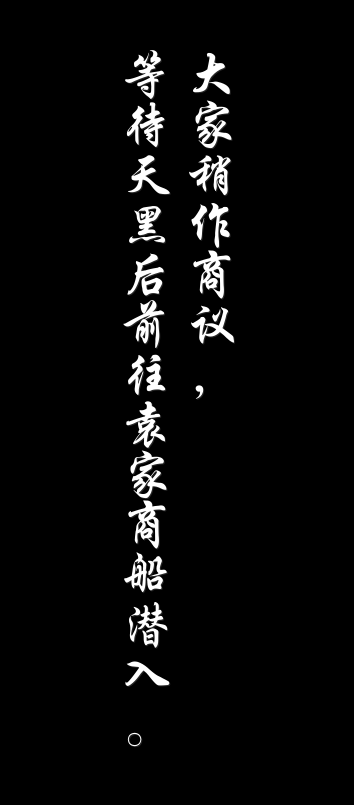 大家稍作商议，
等待天黑后前往袁家商船潜入。